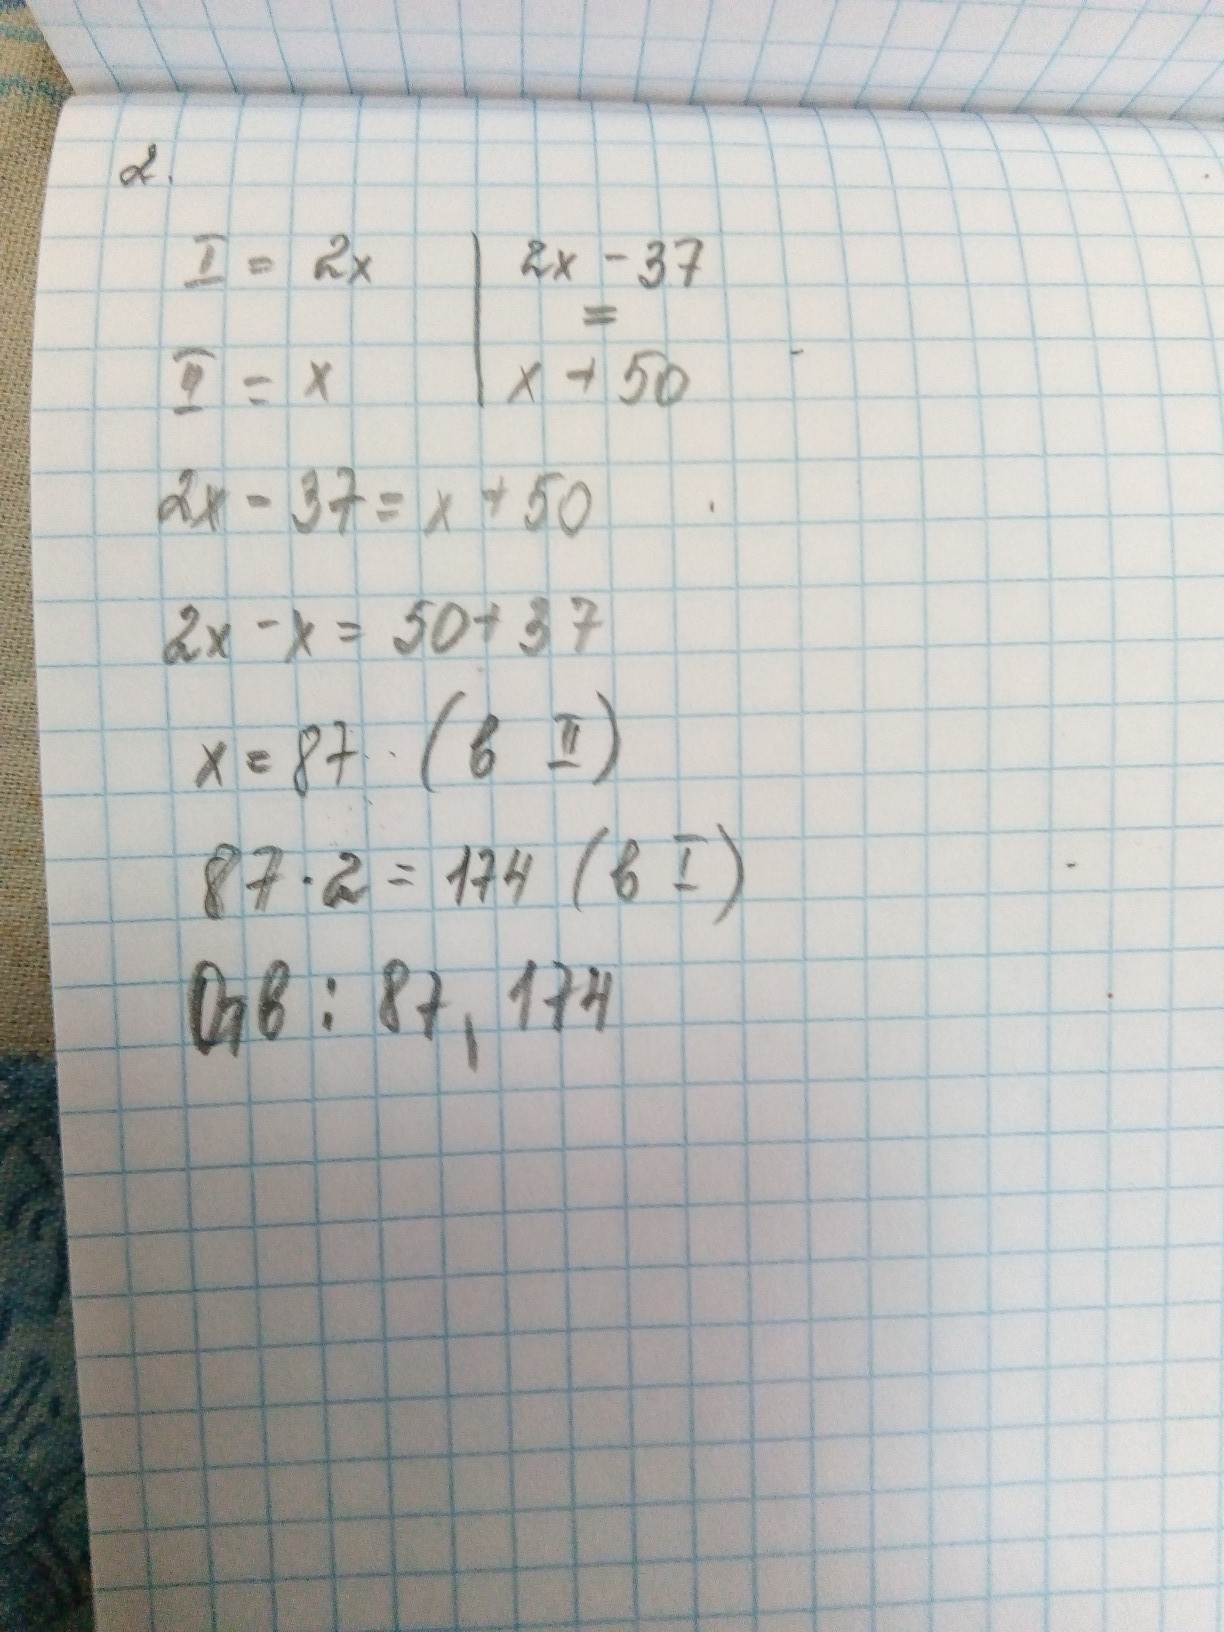 2.
I = 2x | 2x - 37
=
II = x | x + 50
2x - 37 = x + 50
2x - x = 50 + 37
x = 87 (в II)
87 · 2 = 174 (в I)
Отв : 87, 174